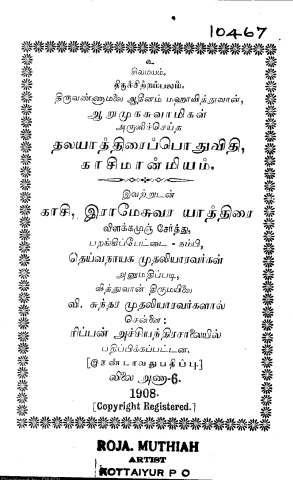 10467
உ
சிவமயம்.
திருச்சிற்றம்பலம்.
திருவண்ணாமலை ஆதீனம் மஹாவித்துவான்,
ஆறுமுகசுவாமிகள்
அருளிச்செய்த
தலயாத்திரைப்பொதுவிதி,
காசிமான்மியம்.
இவற்றுடன்
காசி, இராமேசுவர யாத்திரை
விளக்கமுஞ் சேர்த்து,
பறங்கிப்பேட்டை - நம்பி,
தெய்வநாயக முதலியாரவர்கள்
அனுமதிப்படி,
வித்துவான் திருமயிலை
வி. சுந்தர முதலியாரவர்களால்
சென்னை:
ரிப்பன் அச்சியந்திரசாலையில்
பதிப்பிக்கப்பட்டன.
[இரண்டாவதுபதிப்பு.]
விலை அணா-6.
1908.
[Copyright Registered.]
ROJA. MUTHIAH
ARTIST
KOTTAIYUR P O